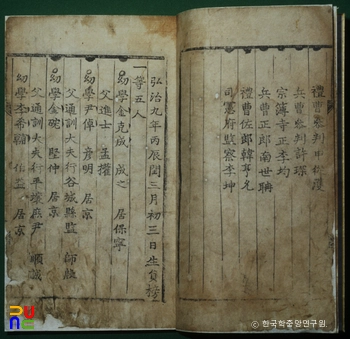 禮曹參判
兵曹參判許琛
宗簿寺正李均
兵曹正郎南世聃
禮曹佐郎韓亨允
司憲府監察李坤
弘治九年丙辰閏三月初三日生員榜
一等五人
幼學金克成 成之 居保寧
父進士 孟權
幼學尹倬 彦明 居京
父通訓大夫行谷城縣監 師殷
幼學金硡 堅仲 居京
父通訓大夫行平壤庶尹 順誠
幼學李希輔 伯益 居京
© 한국학중앙연구원